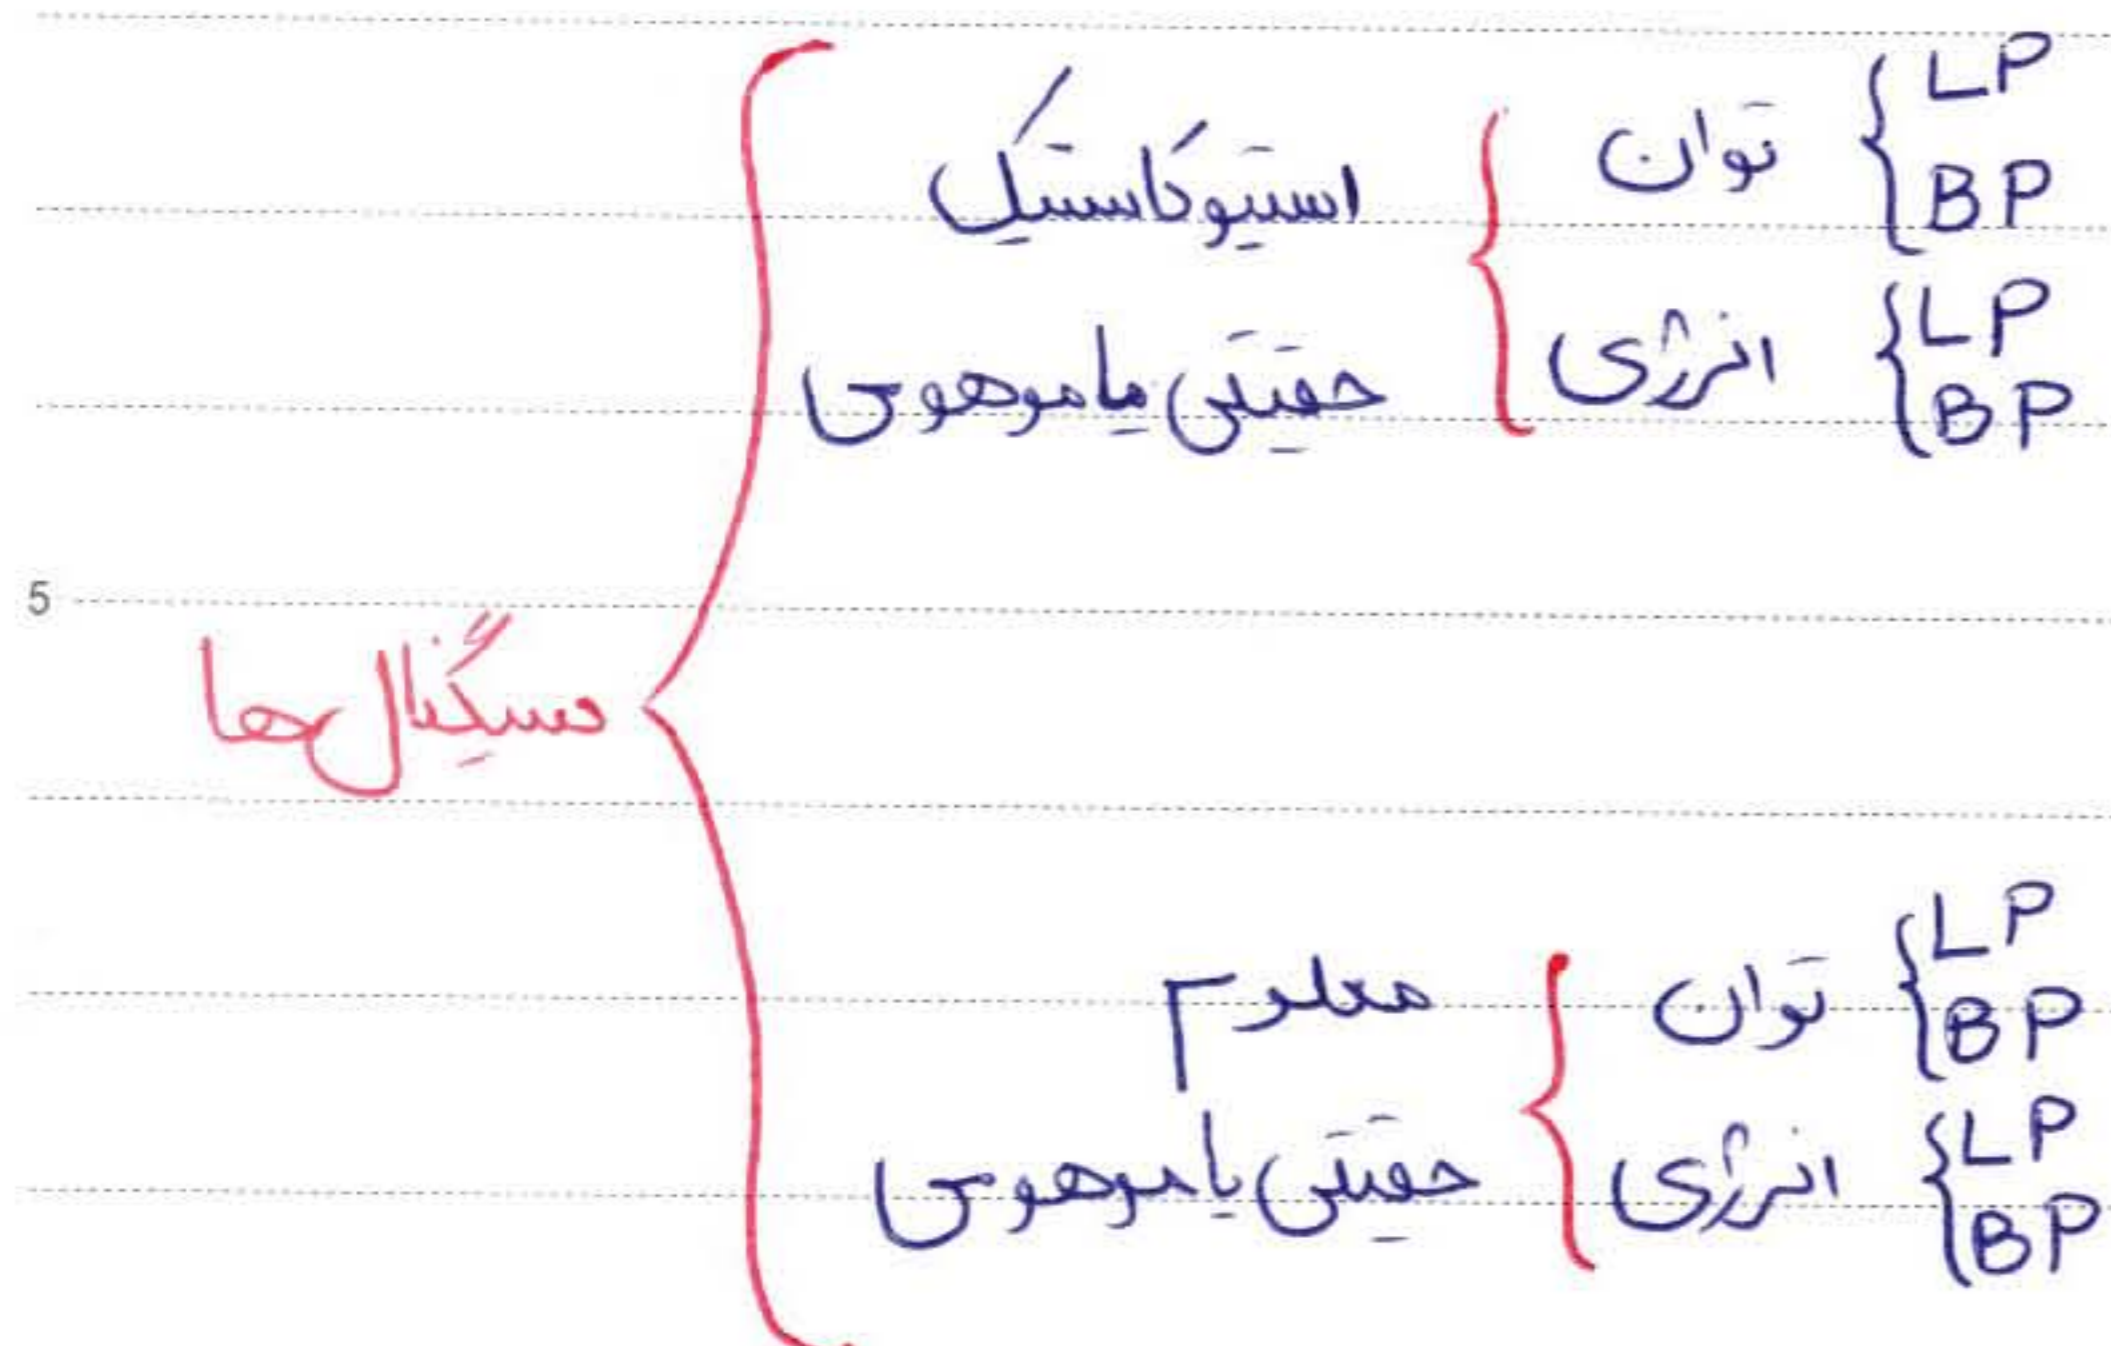 سیگنال‌ها
استوکاستیک
حقیقی یا موهومی
توان
LP
BP
انرژی
LP
BP
5
معلوم
حقیقی یا موهومی
توان
LP
BP
انرژی
LP
BP